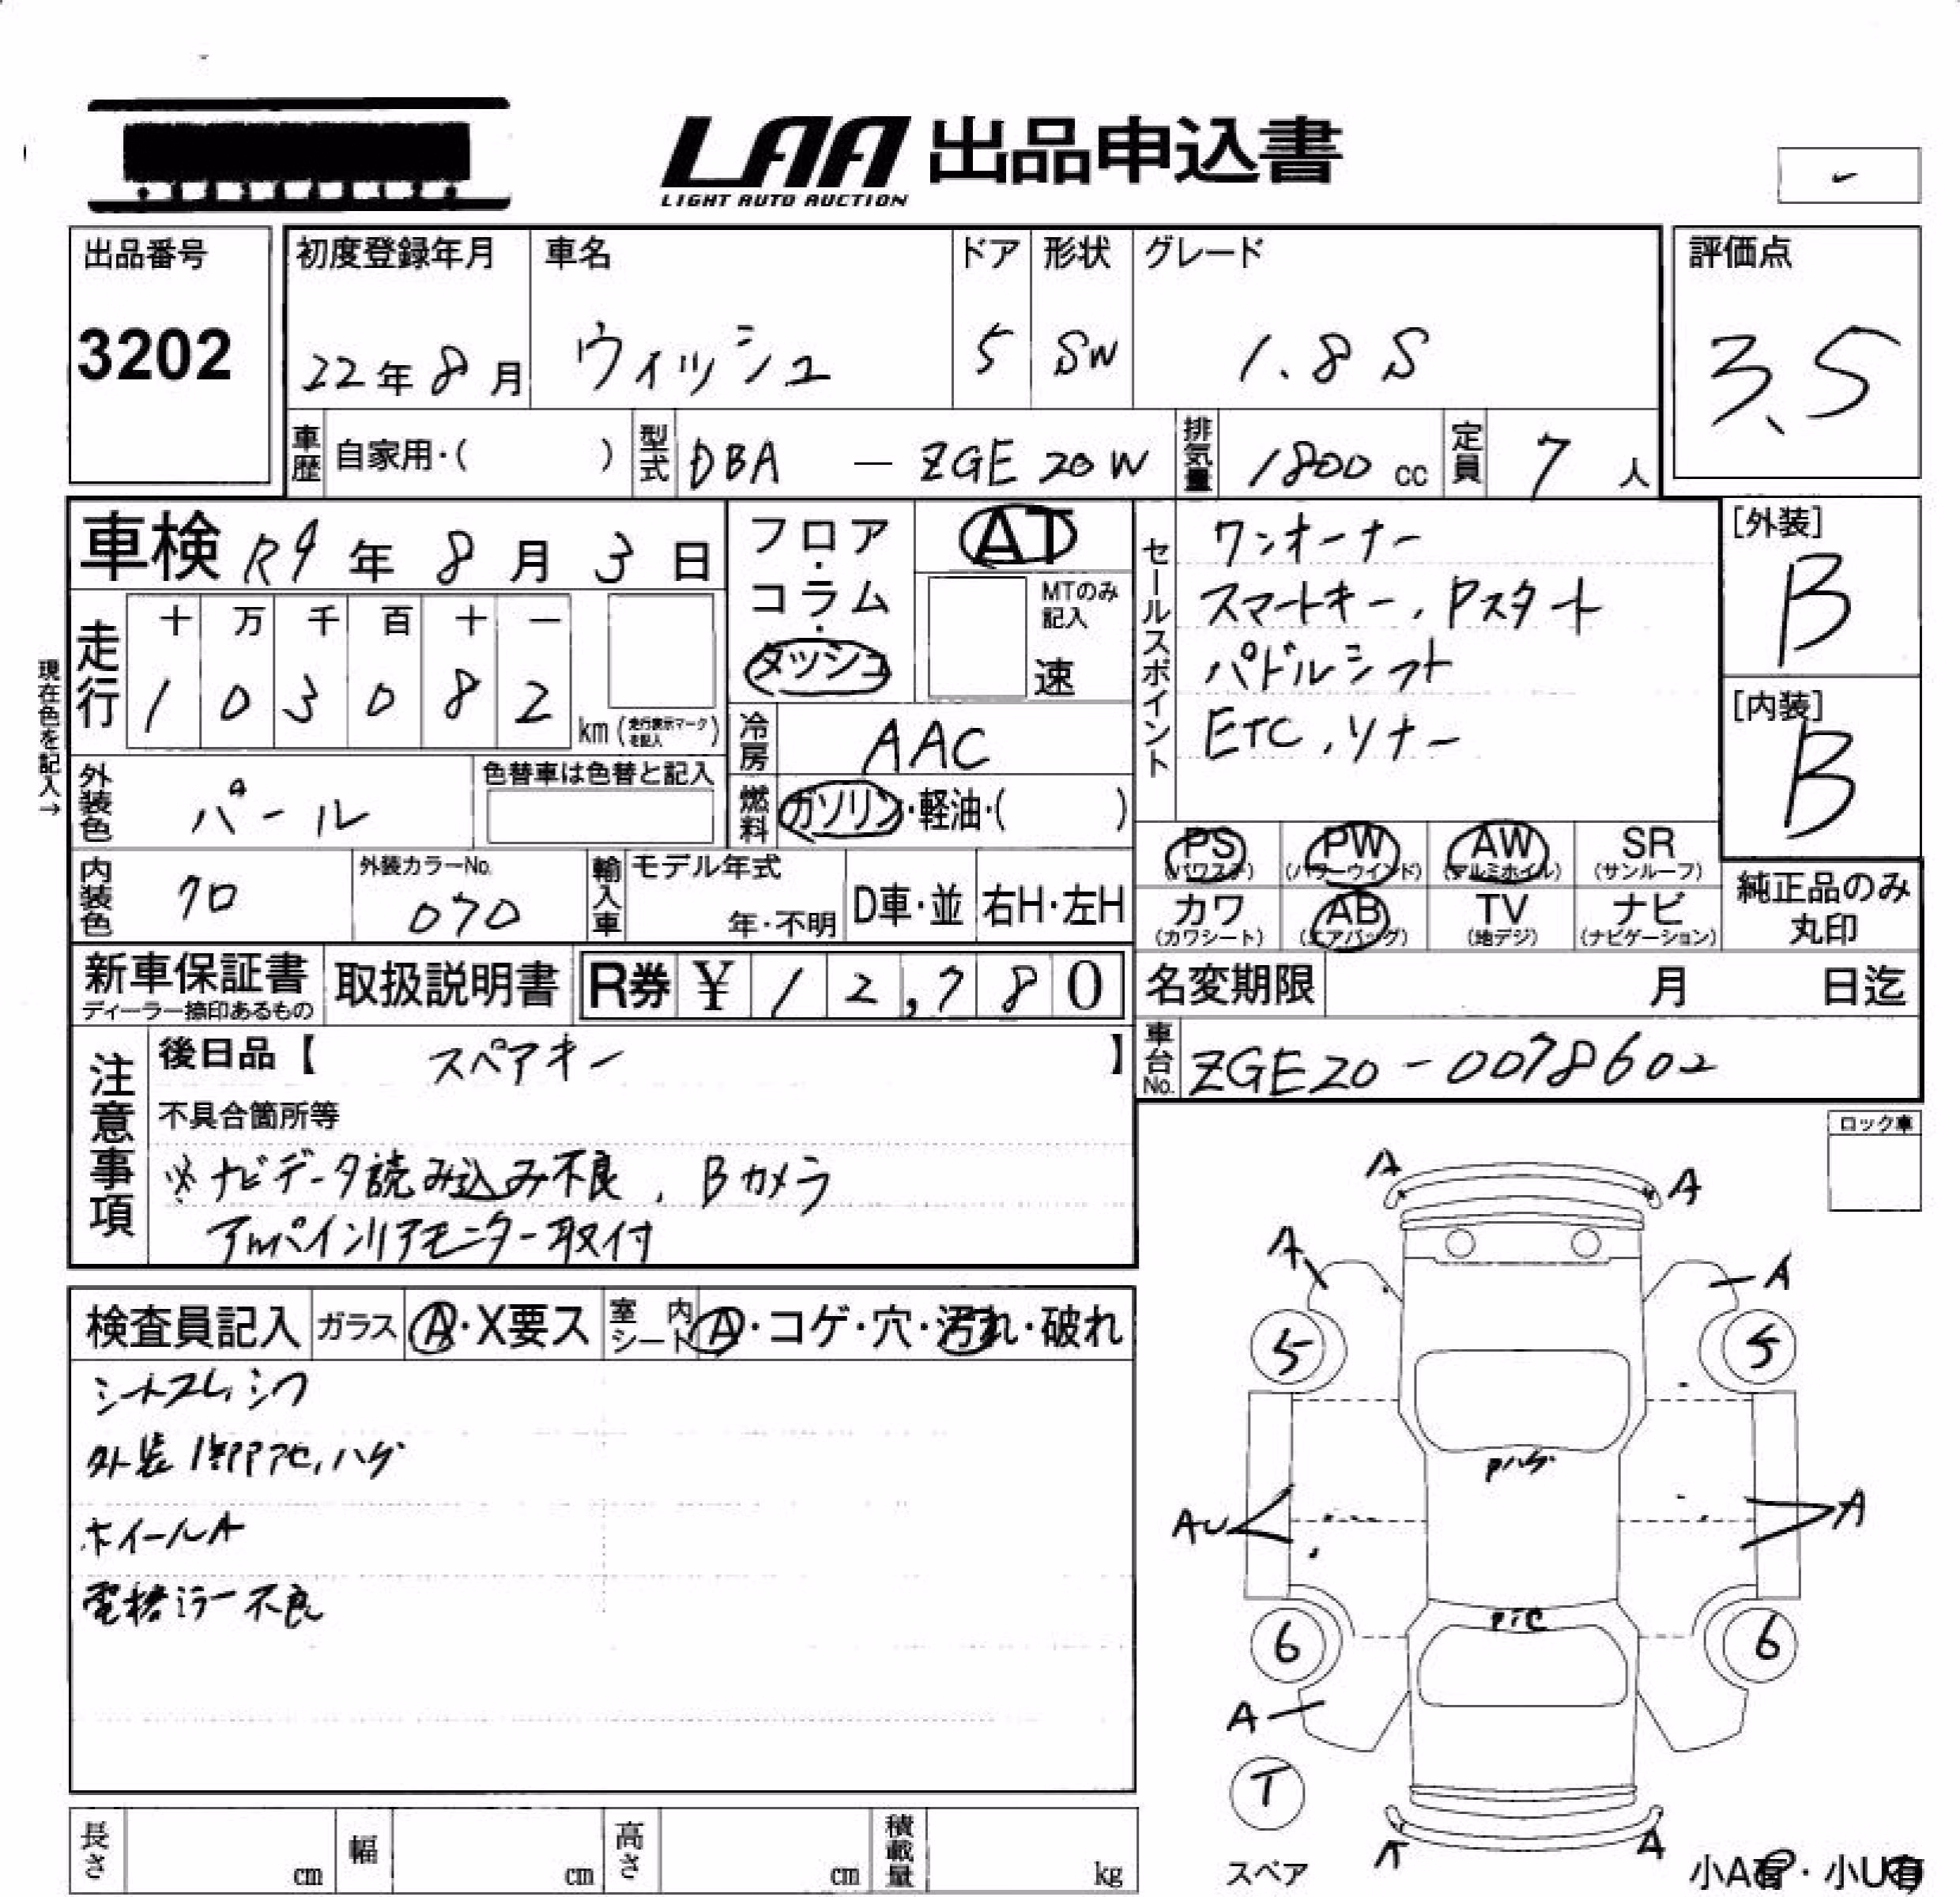 LAA 出品申込書
LIGHT AUTO AUCTION
出品番号
3202
初度登録年月
22年 8月
車名
ウィッシュ
ドア
5
形状
SW
グレード
1.8 S
評価点
3.5
車歴 自家用・( )
型式 DBA — ZGE20W
排気量 1800 cc
定員 7 人
車検 R9 年 8 月 3 日
フロア・コラム・ダッシュ
AT
MTのみ記入
速
現在色を記入→
走行
十 万 千 百 十 一
1 0 3 0 8 2
km (走行表示マークを記入)
冷房 AAC
燃料 ガソリン・軽油・( )
外装色 パール
色替車は色替と記入
内装色 クロ
外装カラーNo.
070
輸入車
モデル年式
年・不明
D車・並
右H・左H
セールスポイント
ワンオーナー
スマートキー, Pスタート
パドルシフト
ETC, ソナー
[外装]
B
[内装]
B
PS (パワステ)
PW (パワーウインド)
AW (アルミホイル)
SR (サンルーフ)
カワ (カワシート)
AB (エアバッグ)
TV (地デジ)
ナビ (ナビゲーション)
純正品のみ丸印
新車保証書
ディーラー捺印あるもの
取扱説明書
R券 ¥ 12,780
名変期限 月 日迄
車台No. ZGE20-0078602
注意事項
後日品【 スペアキー 】
不具合箇所等
※ナビデータ読み込み不良, Bカメラ
アルパインリアモニター取付
ロック車
検査員記入
ガラス A・X要ス
室内シート A・コゲ・穴・汚れ・破れ
シートスレ, シワ
ホイールA
電格ミラー不良
A A
A A
5 5
Pハゲ
AU A
6 6
A
T
スペア
A A
小A有・小U有
長さ cm
幅 cm
高さ cm
積載量 kg